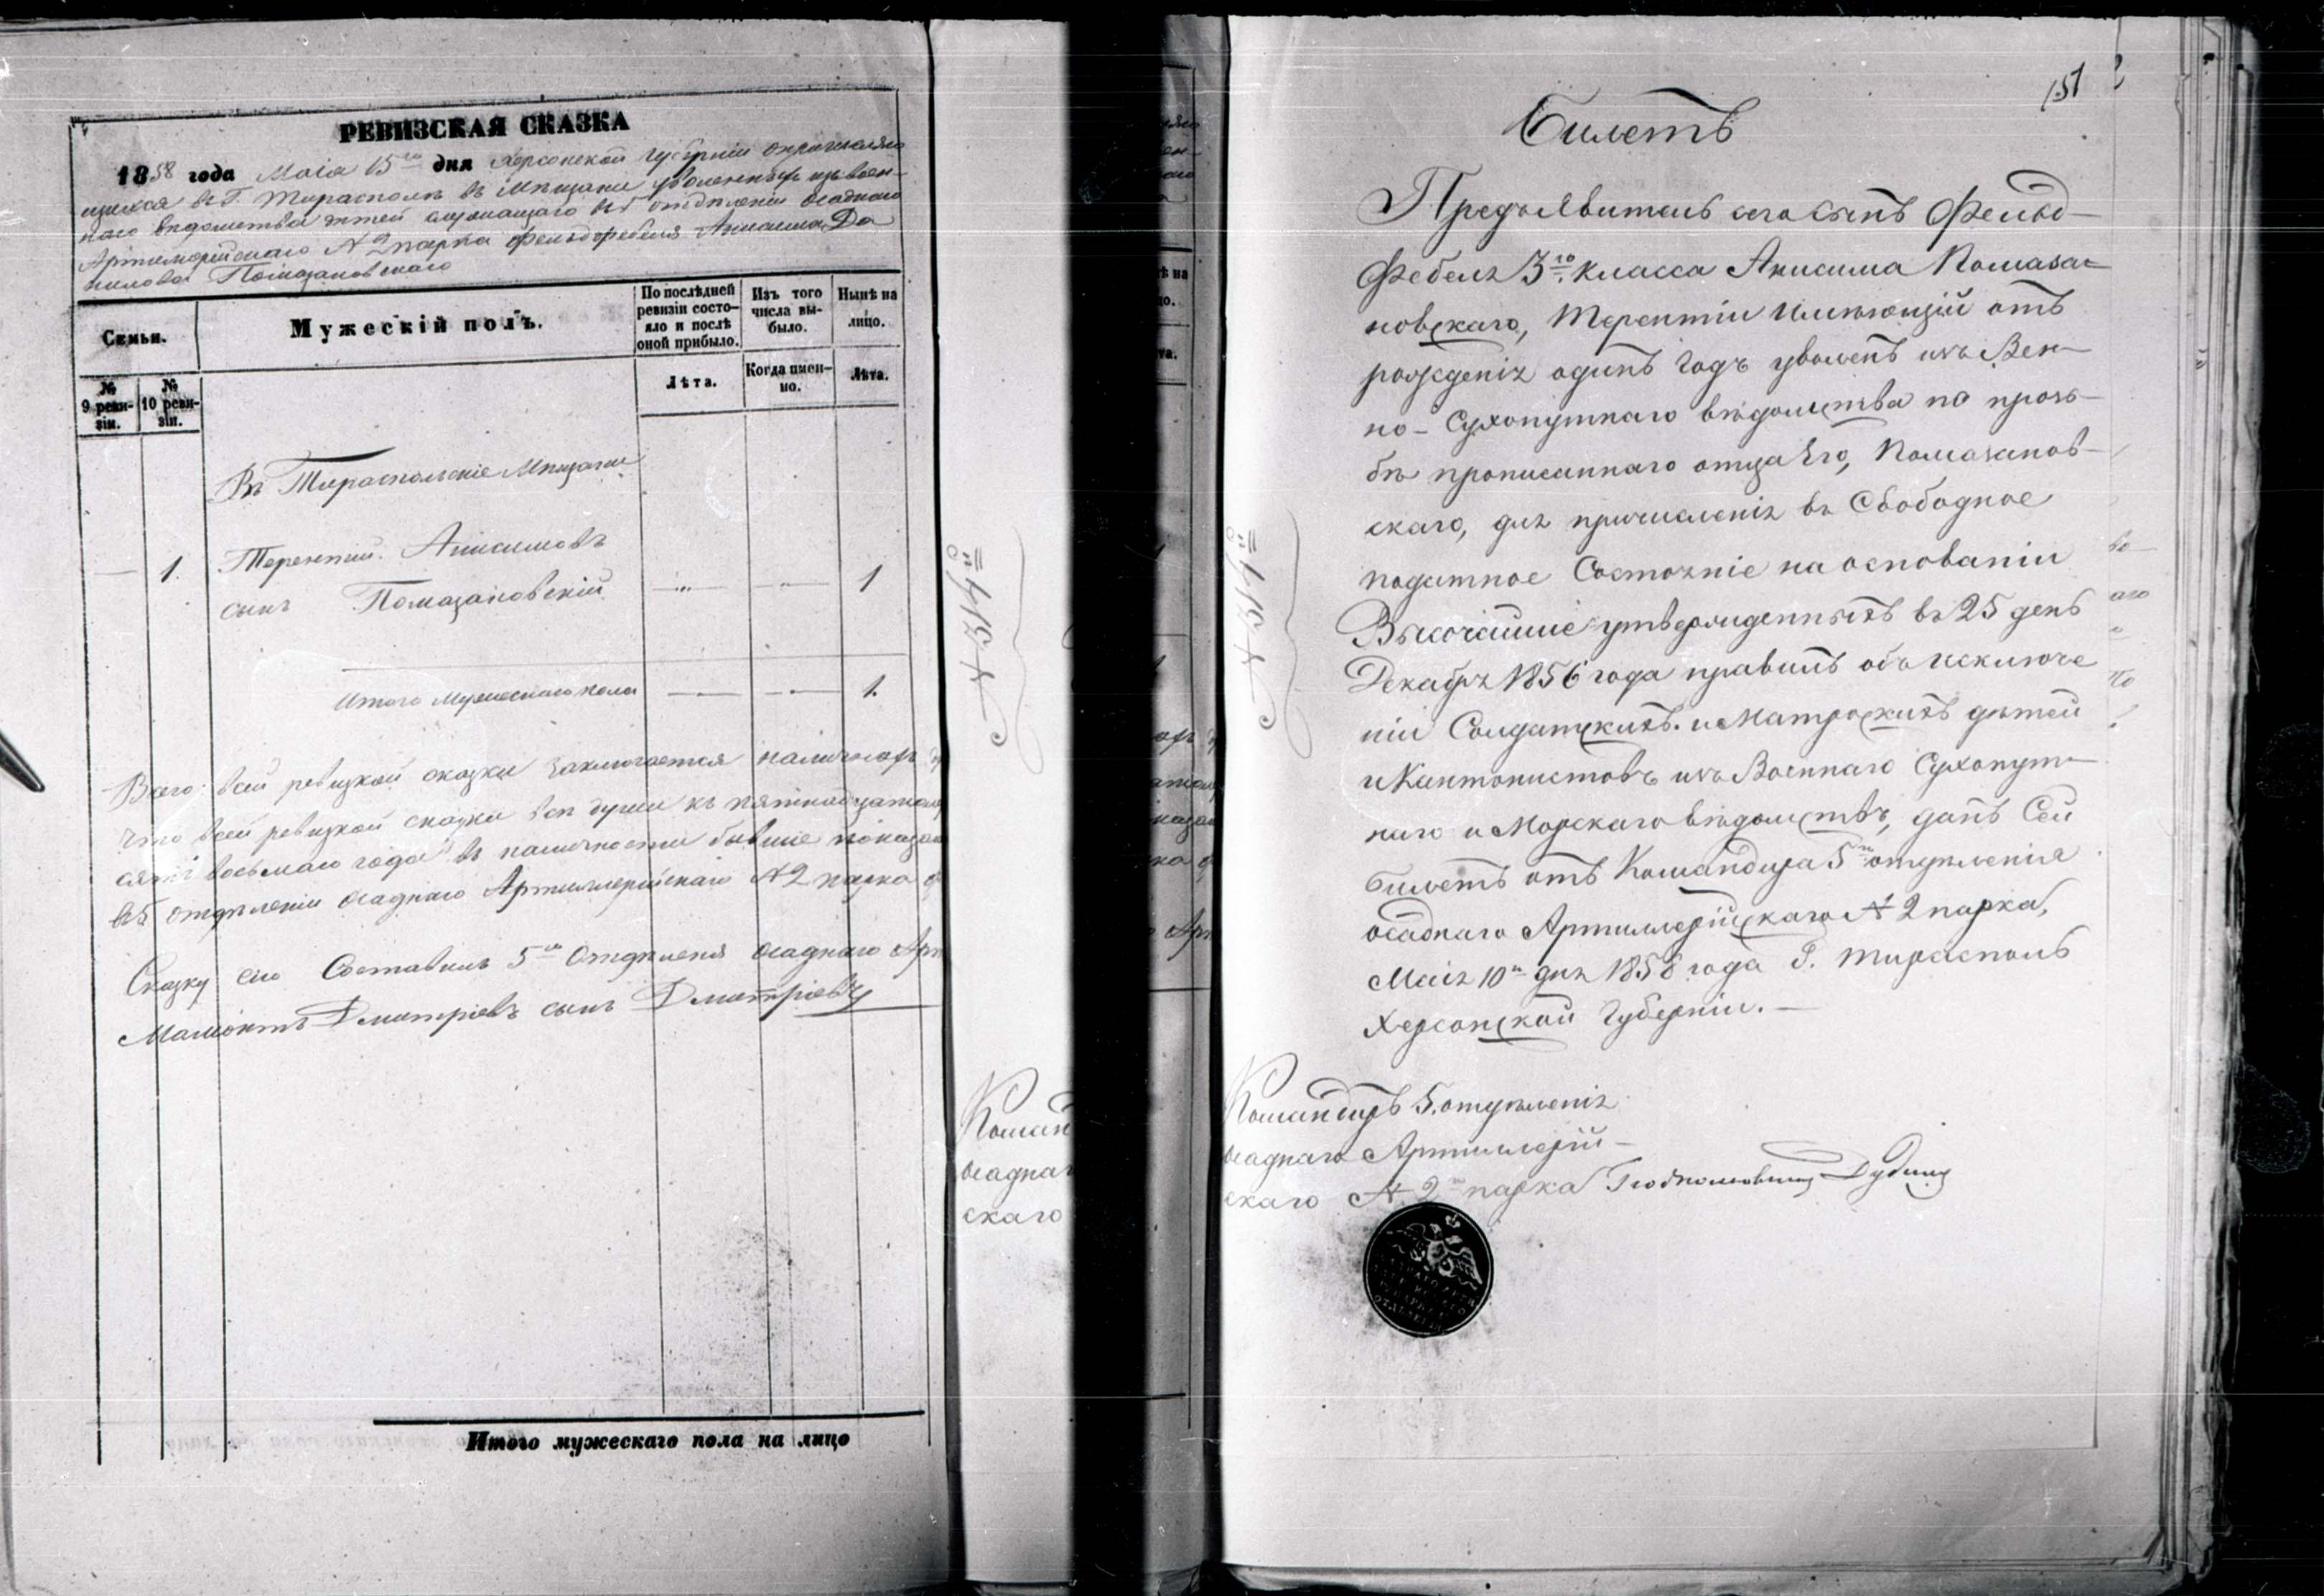 РЕВИЗСКАЯ СКАЗКА
1858 года Маія 15го дня Херсонской Губерніи
щихся въ Г. Тирасполѣ въ Мѣщане уволенныхъ изъ воен-
наго вѣдомства дѣтей служащаго въ 5 отдѣленіи Осаднаго
Артилерійскаго № 2 парка Фельдфебеля Анисима Да
нилова Помазановскаго
Семьи.
Мужескій полъ.
По послѣдней ревизіи состо-
яло и послѣ оной прибыло.
Изъ того числа вы-
было.
Нынѣ на лицо.
№ 9 реви-
зіи.
№ 10 реви-
зіи.
Лѣта.
Когда имен-
но.
Лѣта.
Въ Тираспольскіе Мѣщане
— 1. Терентій Анисимовъ
сынъ Помазановскій — „ — — „ — 1
Итого Мужескаго пола — — 1.
Всего въ сей ревизкой сказки заключается наличныхъ
Что въ сей ревизкой сказки всѣ души къ пятнадцатому
восьмаго года въ наличности бывшіе показаны
въ 5 отдѣленіи осаднаго Артиллерійскаго № 2 парка
Сказку сію Составилъ 5го Отдѣленія осаднаго Арт
Мамонтъ Дмитріевъ сынъ Дмитріевъ
Итого мужескаго пола на лицо
Коман
осаднаг
скаго
151
Билетъ
Предъявитель сего сынъ Фельд-
Фебеля 3го класса Анисима Помаза-
новскаго, Терентіи имѣющій отъ
рожденія одинъ годъ уволенъ изъ Вен-
но-Сухопутнаго вѣдомства по прозь-
бѣ прописаннаго отца его, Помазанов-
скаго, для причисленія въ Свободное
податное Состояніе на основаніи
Высочайше утвержденныхъ въ 25 день
Декабря 1856 года правилъ объ исключе
ніи Солдатскихъ и Матроскихъ дѣтей
и Кантонистовъ изъ Военнаго Сухопут-
наго и Морскаго вѣдомствъ, данъ Сей
билетъ отъ Командира 5го отдѣленія
осаднаго Артиллерійскаго № 2 парка,
Маія 10го дня 1858 года Г. Тирасполь
Херсонской Губерніи. —
№ 73й
Командиръ 5. отдѣленія
осаднаго Артиллерій-
скаго № 2го парка Подполковникъ